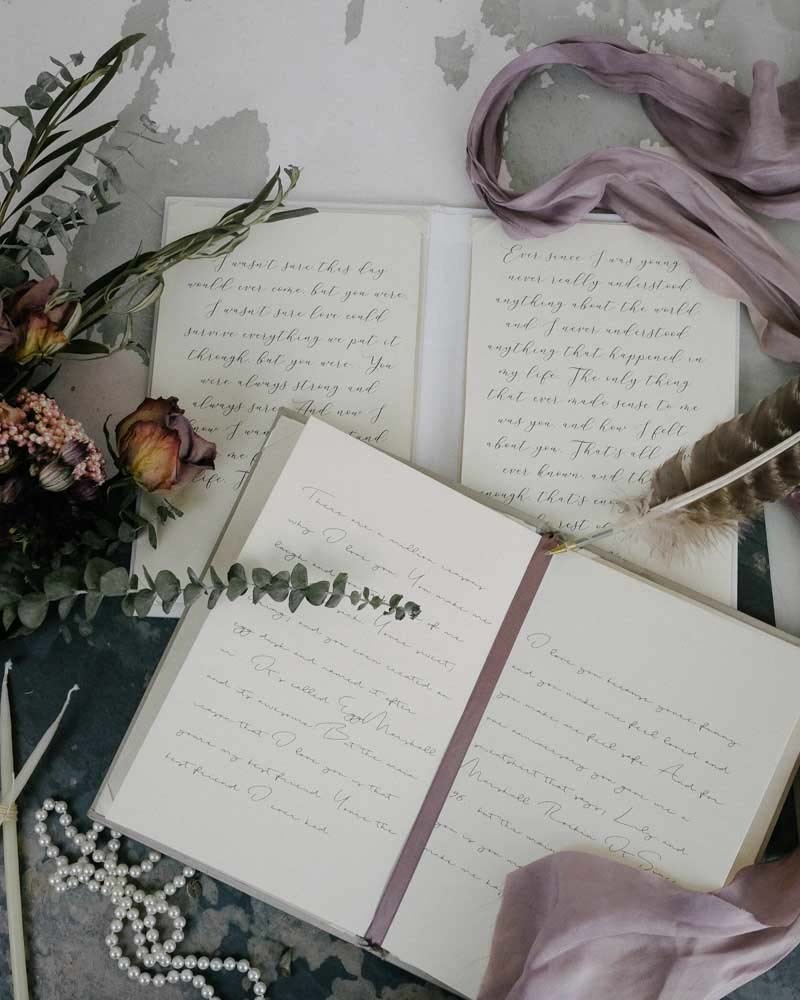 I wasn't sure this day
would ever come, but you were.
I wasn't sure love could
survive everything we put it
through, but you were. You
were always strong and
always sure. And now I
know I
me
life.
Ever since I was young
never really understood
anything about the world,
and I never understood
anything that happened in
my life. The only thing
that ever made sense to me
was you and how I felt
about you. That's all
ever known, and
enough, that's
rest of
There are a million reasons
why I love you. You make me
laugh and of me
You're sweet,
and you even created an
egg dish and named it after
me. It's called Eggs Marshall
and it's awesome. But the main
reason that I love you is that
you're my best friend. You're the
best friend I ever had.
I love you because you're funny
and you make me feel loved and
you make me feel safe. And for
our anniversary you gave me a
sweatshirt that says, Lily and
Marshall Rockin It Since
96, but the main
you is you
make me